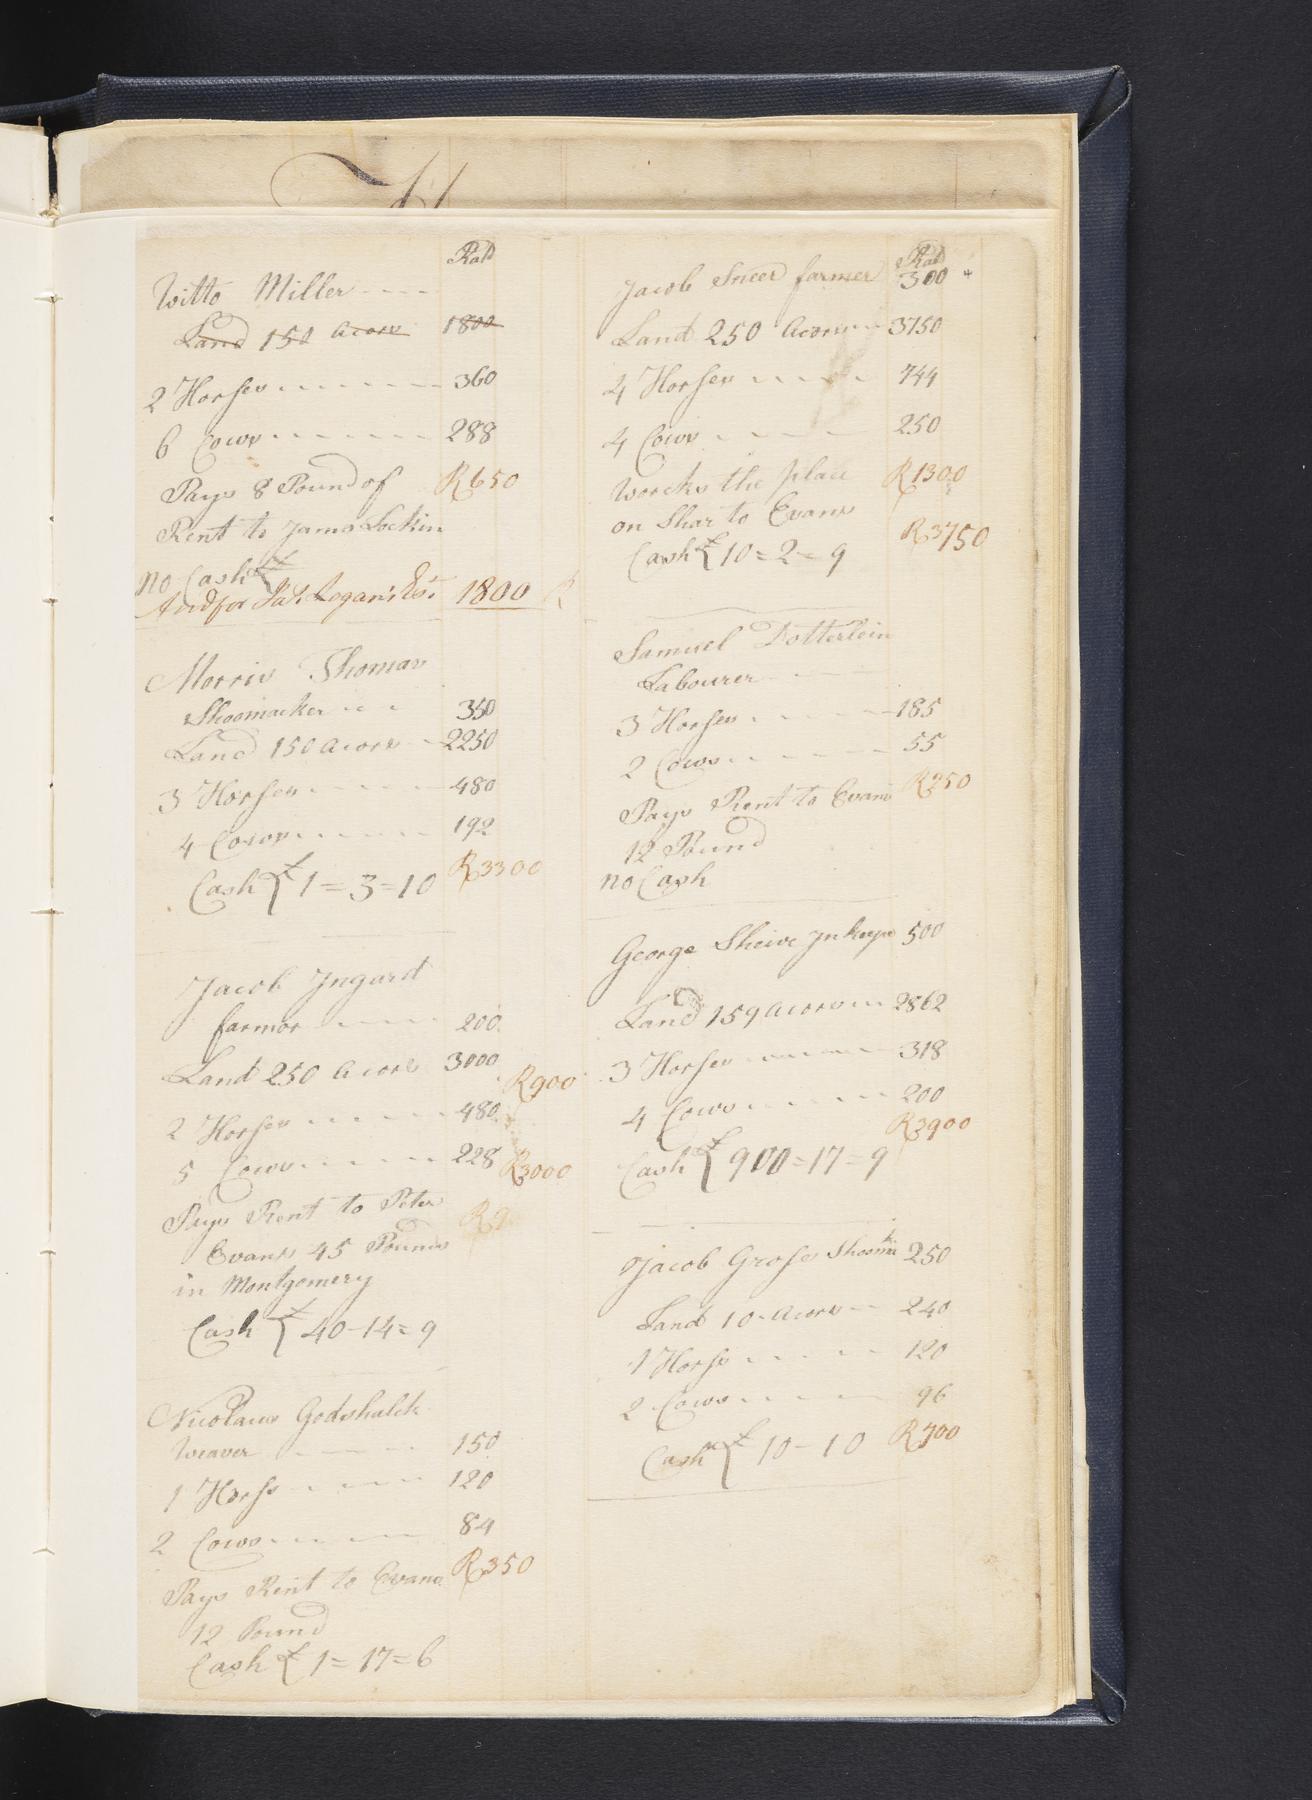 Rat
Witto Miller
Land 150 acors 1800
2 Horses 360
6 Cows 288
Pays 8 Pound of R650
Rent to Jams Lockin
no Cash £
And for Jas. Logan's Est. 1800
Morris Thomas
Shoomacker 350
Land 150 acors 2250
3 Horses 480
4 Cows 192
R3300
Cash £ 1=3=10
Jacob Jngard
farmor 200
Land 250 acors 3000
R900
2 Horses 480
5 Cows 228 R3000
Pays Rent to Peter
Evans 45 Pounds
in Montgomery
Cash £ 40-14=9
Nicolaus Godshalck
Weaver 150
1 Horse 120
2 Cows 84
Pays Rent to Evans R350
12 Pound
Cash £ 1=17=6
Rat
Jacob Sneer farmer 300
Land 250 acors 3750
4 Horses 744
4 Cows 250
Worcks the place R1300
on Shar to Evans R3750
Cash £ 10=2=9
Samuel Dotterlein
Labourer
3 Horses 185
2 Cows 55
Pays Rent to Evans R250
12 Pound
no Cash
George Sheive Jnkeepe 500
Land 159 acors 2862
3 Horses 318
4 Cows 200
R3900
Cash £ 900=17=9
Jacob Grose Shoomk 250
Land 10 acors 240
1 Horse 120
2 Cows 96
Cash £ 10-10 R700